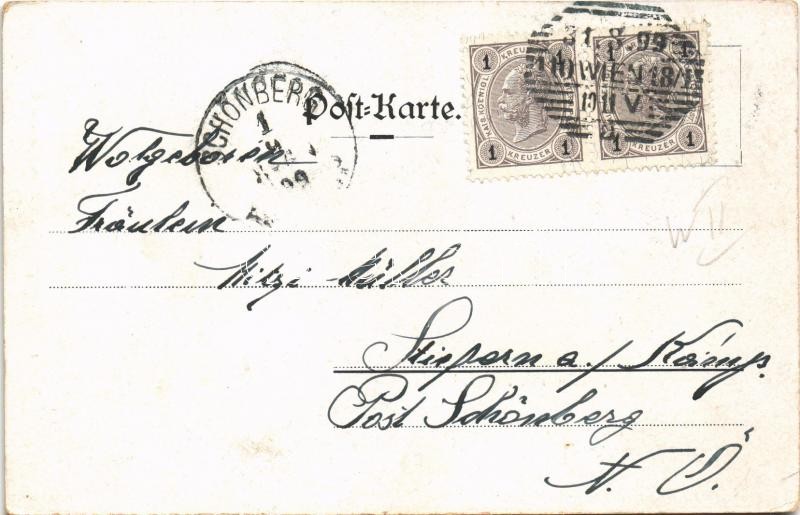 Post-Karte.
SCHÖNBERG
1
99
31 8 99
WIEN 18/1
11 V
1 KREUZER 1
KAIS. KOENIGL.
1 KREUZER 1
1 KREUZER 1
1 KREUZER 1
Wolgeboren
Fräulein
Mitzi Müller
Stiefern a./ Kamp.
Post Schönberg
N. Ö.
W II